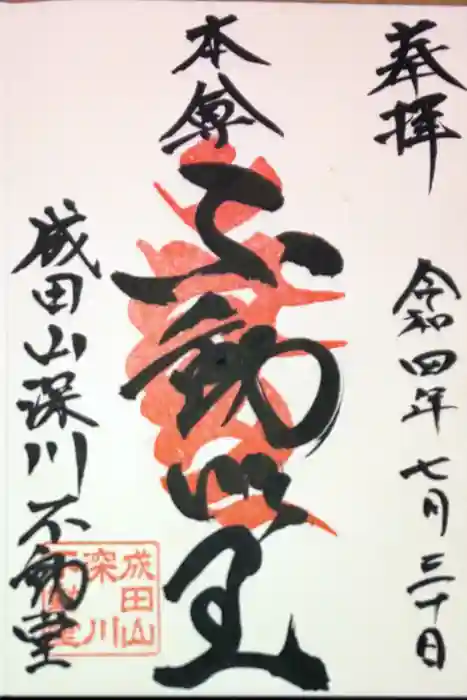 奉拝
令和四年七月三十日
本尊
不動明王
成田山深川不動堂
成田山
深川
不動堂